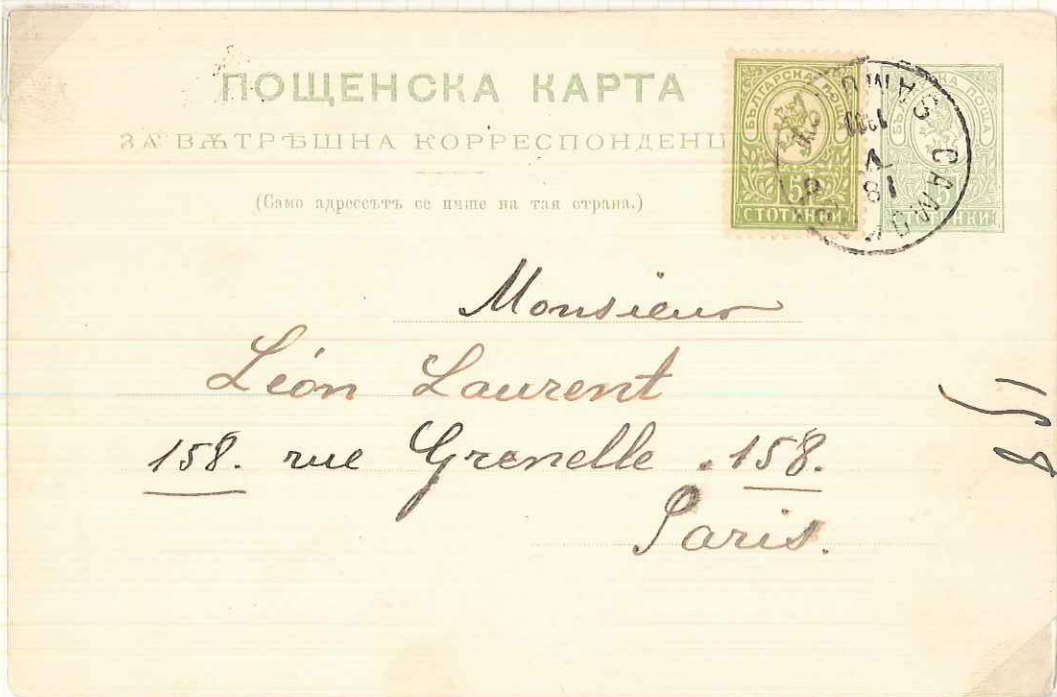 ПОЩЕНСКА КАРТА
ЗА ВѪТРѢШНА КОРРЕСПОНДЕНЦ
(Само адрессътъ се пише на тая страна.)
БЪЛГАРСКА ПОЩА
15
СТОТИНКИ
КА ПОЩА
5
СТОТИНКИ
САМОКОВ
SAM
18
V
Monsieur
Léon Laurent
158. rue Grenelle . 158.
Paris.